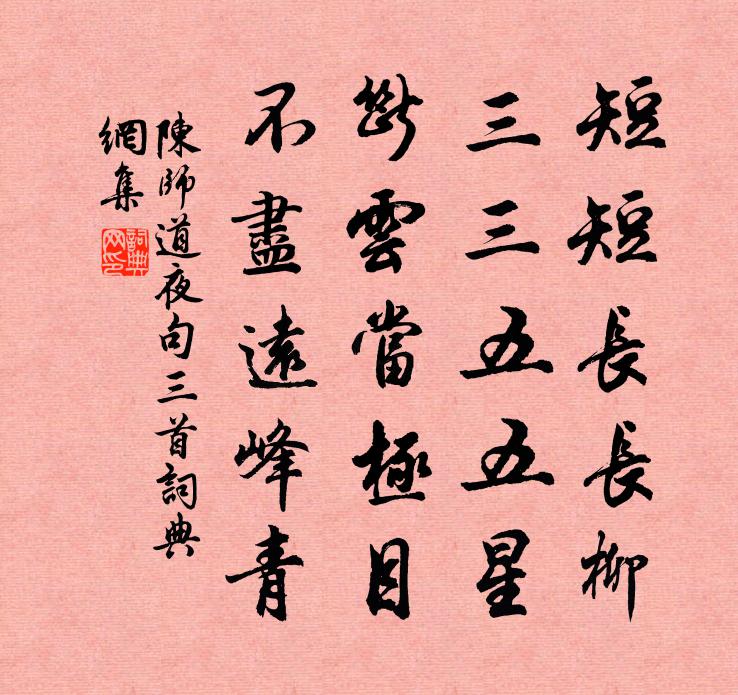 短短長長柳
三三五五星
斷雲當極目
不盡遠峰青
陳師道夜句三首詞典
網集
詞典網印